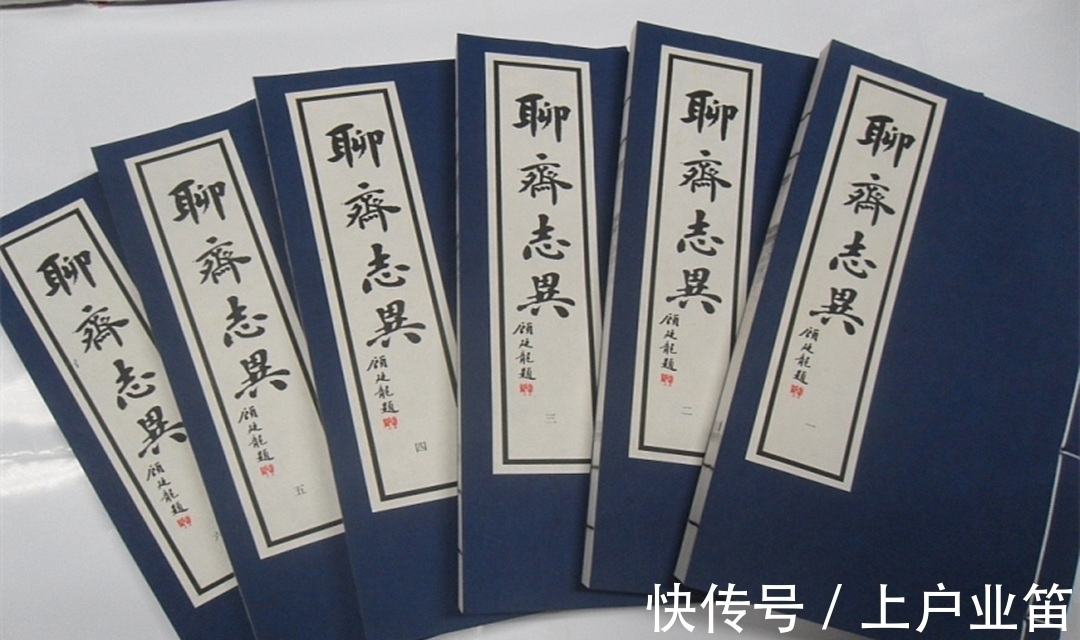 聊齋志異
顧廷龍題
一
聊齋志異
顧廷龍題
二
聊齋志異
顧廷龍題
三
聊齋志異
顧廷龍題
四
聊齋志異
顧廷龍題
五
聊齋志異
顧廷龍題
六
快传号 / 上户业笛